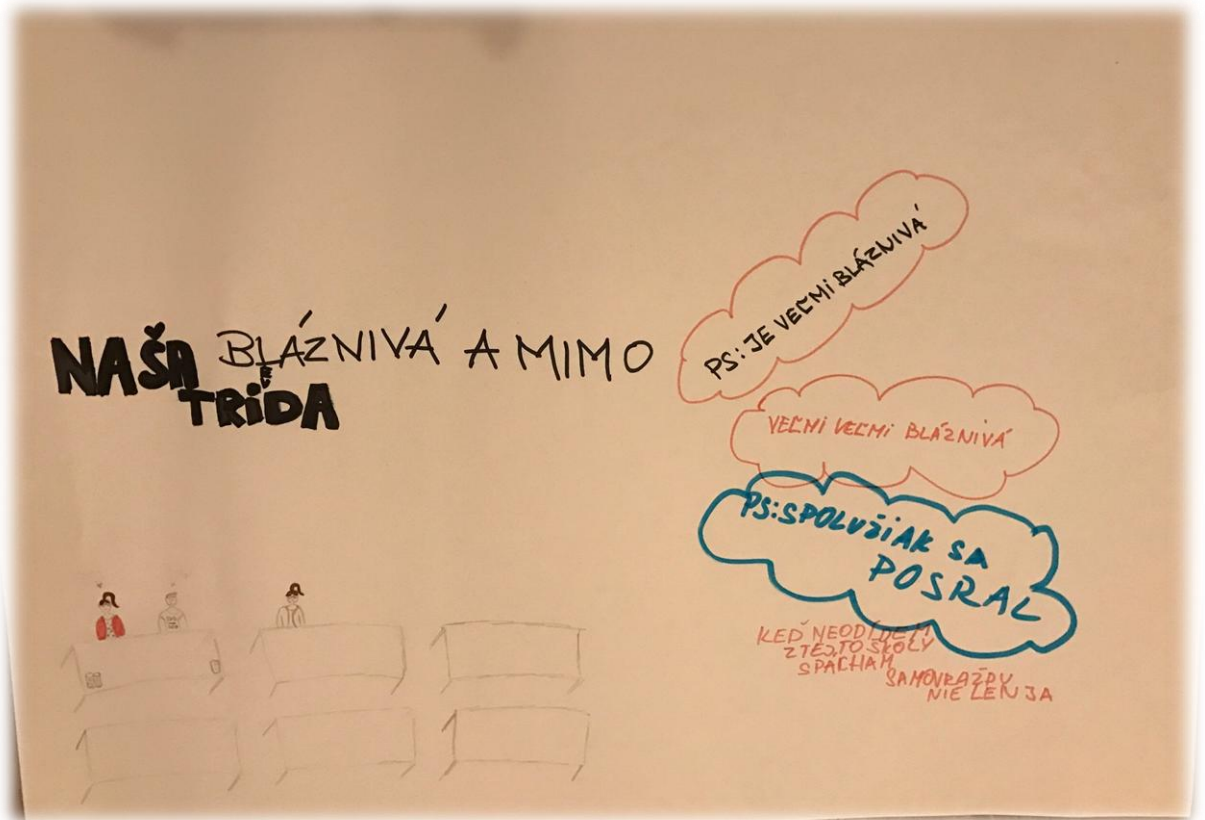 NAŠA BLÁZNIVÁ A MIMO
TRIDA
PS: JE VEĽMI BLÁZNIVÁ
VEĽMI VEĽMI BLÁZNIVÁ
PS: SPOLUŽIAK SA
POSRAL
KEĎ NEODÍDEM
Z TEJTO ŠKOLY
SPACHAM
SAMOVRAŽDU
NIE LEN JA